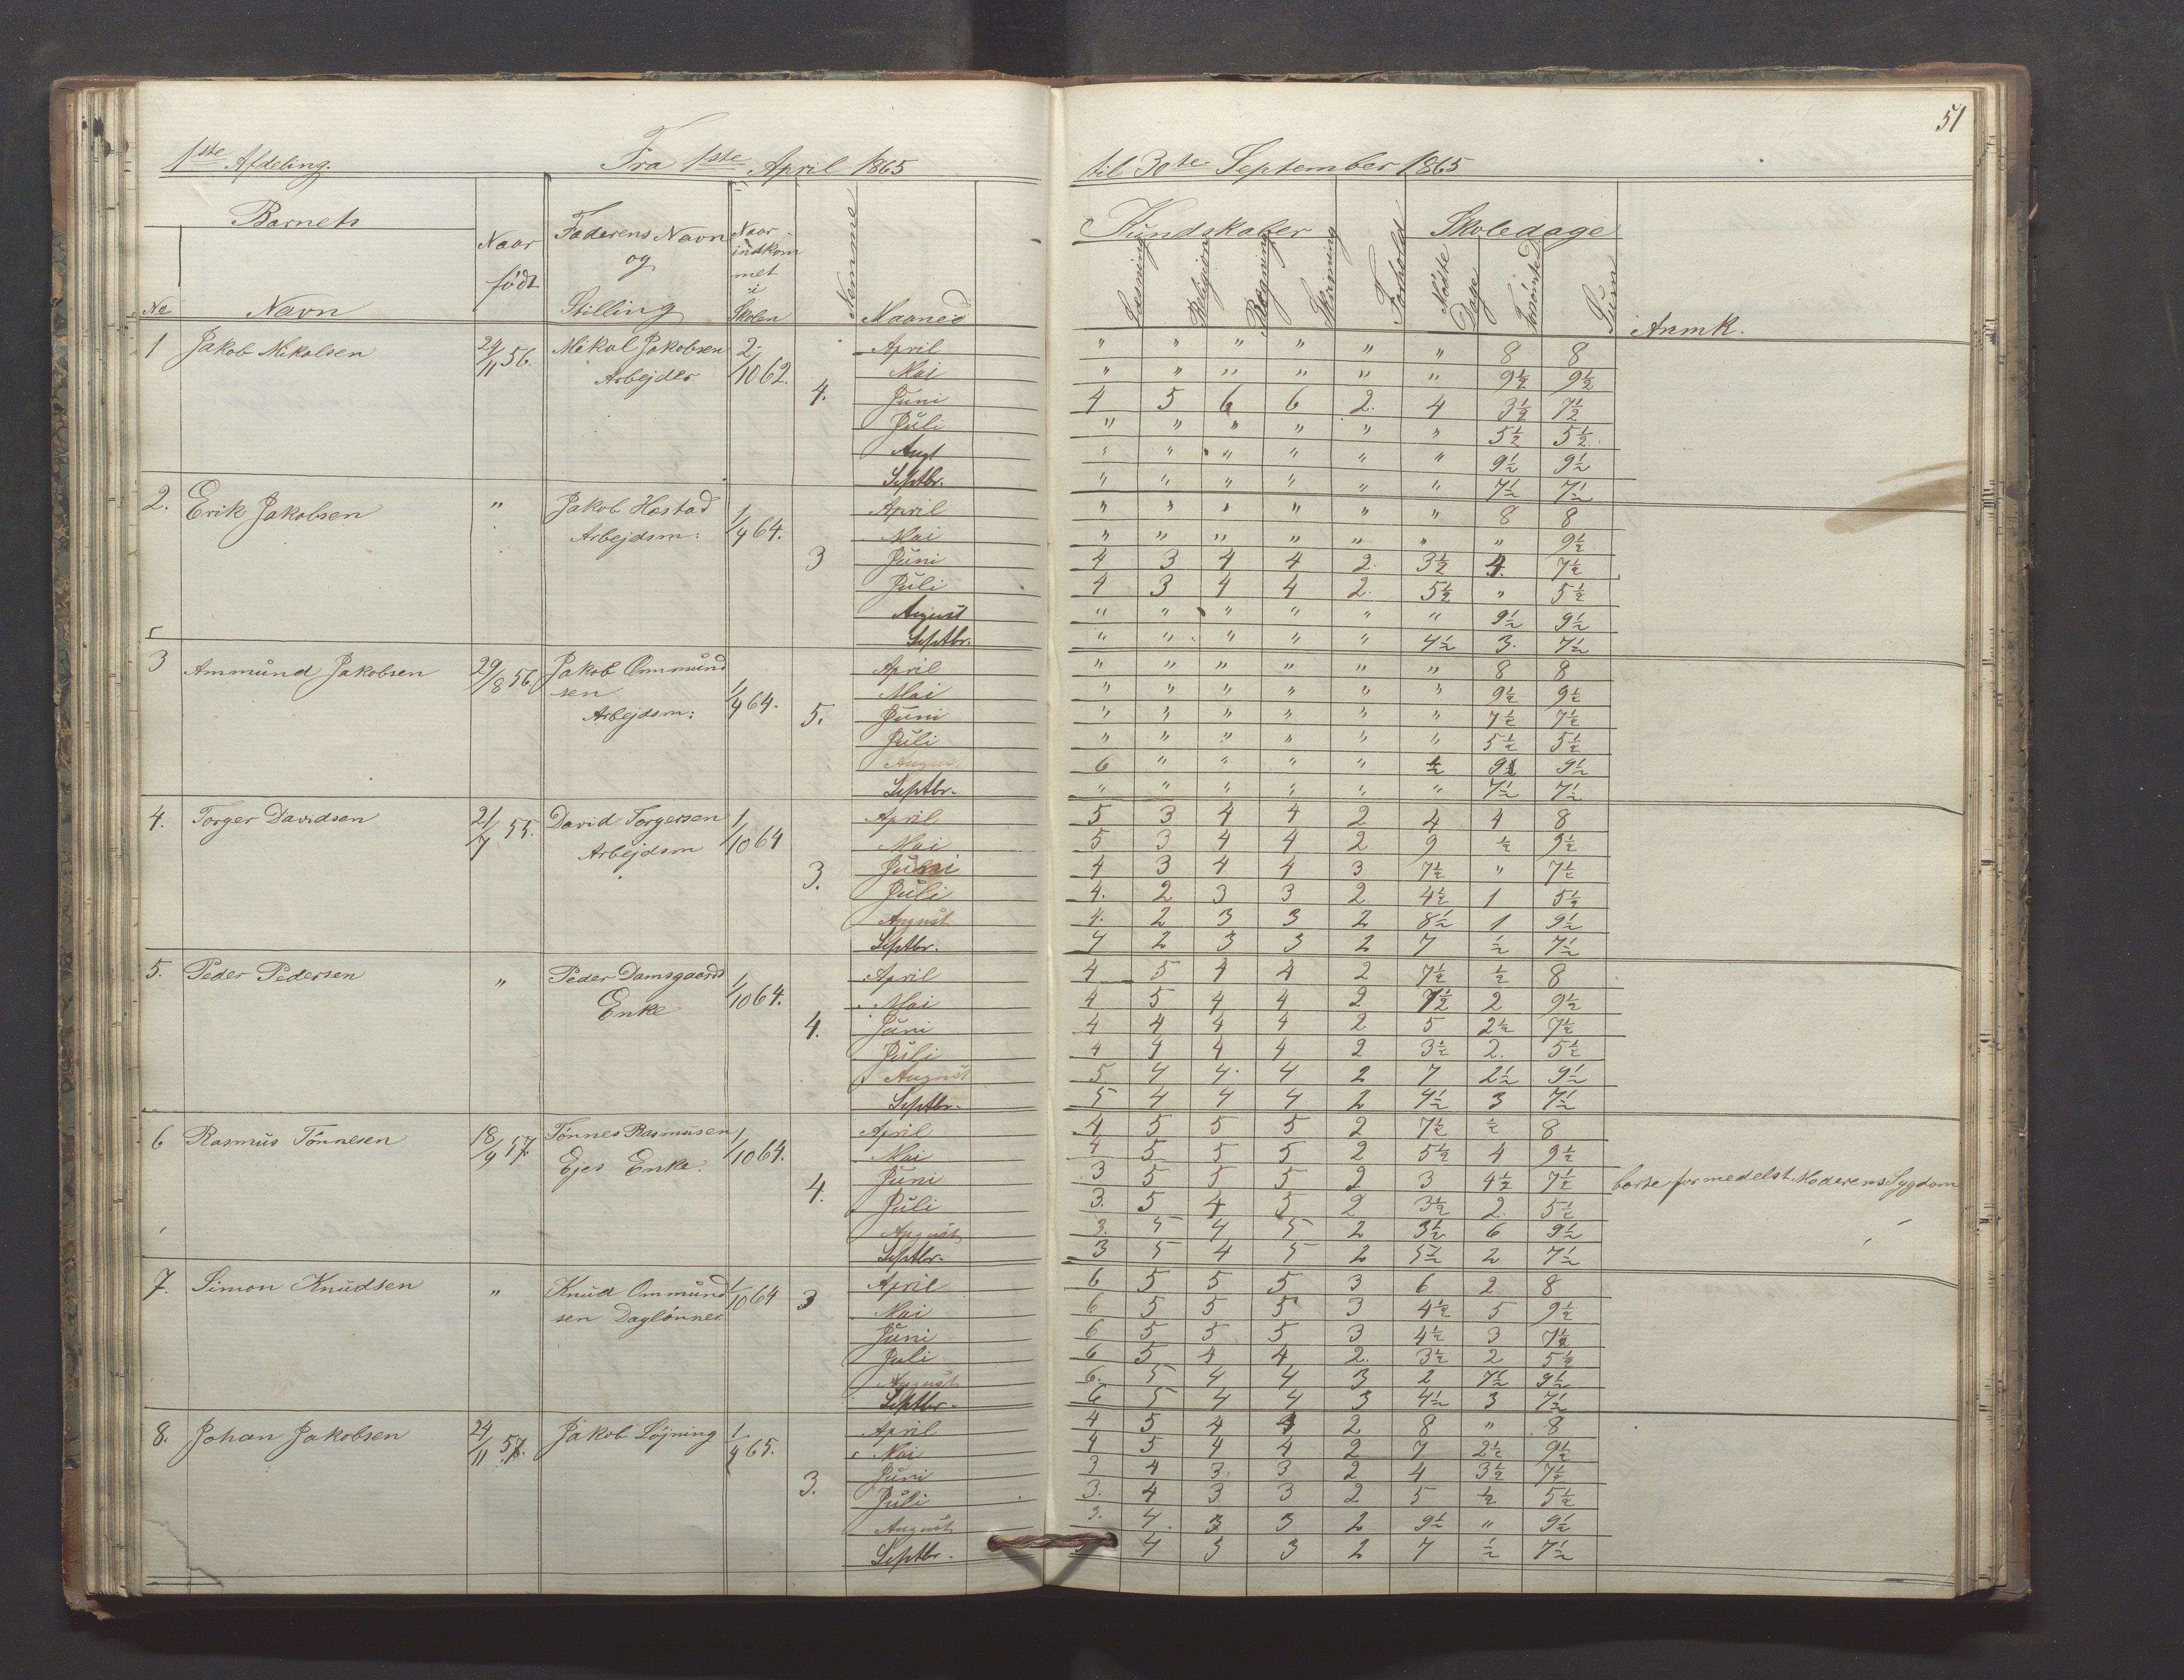 51
1ste Afdeling. Fra 1ste April 1865 til 30te September 1865
Barnets Naar født Faderens Navn og Stilling Naar indkommet i Skolen Nemme Maaned Kundskaber Læsning Religion Regning Skrivning Forhold Skoledage Mødte Dage Forsømte Sum Anmk.
No Navn
1 Jakob Nikolsen 24/11 56. Nikol Jakobsen 2/10 62. 4. April " " " " " " 8 8
Arbejder. Mai " " " " " " 9½ 9½
Juni 4 5 6 6 2. 4 3½ 7½
Juli " " " " " " 5½ 5½
Augt " " " " " " 9½ 9½
Septbr. " " " " " " 7½ 7½
2. Erik Jakobsen " Jakob Hostad 1/4 64. 3 April " " " " " " 8 8
Arbejdsm: Mai " " " " " " " 9½
Juni 4 3 4 4 2. 3½ 4. 7½
Juli 4 3 4 4 2. 5½ " 5½
August " " " " " " 9½ 9½
Septbr. " " " " " 4½ 3. 7½
3 Ammund Jakobsen 29/8 56. Jakob Ommund 1/4 64. 5. April " " " " " " 8 8
sen Mai " " " " " " 9½ 9½
Arbejdsm: Juni " " " " " " 7½ 7½
Juli " " " " " " 5½ 5½
August 6 " " " " ½ 9 9½
Septbr. " " " " " " 7½ 7½
4. Torger Davidsen 21/7 55. David Torgersen 1/10 64 3. April 5 3 4 4 2 4 4 8
Arbejdsm Mai 5 3 4 4 2 9 ½ 9½
Juni 4 3 4 4 3 7½ " 7½
Juli 4. 2 3 3 2 4½ 1 5½
August 4. 2 3 3 2 8½ 1 9½
Septbr. 4 2 3 3 2 7 ½ 7½
5. Peder Pedersen " Peder Damsgaards 1/10 64. 4. April 4 5 4 4 2 7½ ½ 8
Enke Mai 4 5 4 4 2 7½ 2 9½
Juni 4 4 4 4 2 5 2½ 7½
Juli 4 4 4 4 2 3½ 2. 5½
August 5 4 4. 4 2 7 2½ 9½
Septbr. 5 4 4 4 2 4½ 3 7½
6 Rasmus Tønnesen 18/9 57. Tønnes Rasmusen 1/10 64. 4. April 4 5 5 5 2 7½ ½ 8
Ejes Enke. Mai 4 5 5 5 2 5½ 4 9½
Juni 3 5 5 5 2 3 4½ 7½ borte formedelst Moderens Sygdom
Juli 3. 5 4 5 2 3½ 2. 5½
August 3. 5 4 5 2 3½ 6 9½
Septbr. 3 5 4 5 2 5½ 2 7½
7. Simon Knudsen " Knud Ommund 1/10 64 3 April 6 5 5 5 3 6 2 8
sen Daglønner. Mai 6 5 5 5 3 4½ 5 9½
Juni 6 5 5 5 3 4½ 3 7½
Juli 6 5 4 4 2. 3½ 2 5½
August 6. 5 4 4 3 2 7½ 9½
Septbr. 6 5 4 4 3 4½ 3 7½
8. Johan Jakobsen 24/11 57. Jakob Løjning 1/4 65. 3. April 4 5 4 4 2 8 " 8
Mai 4 5 4 4 2 7 2½ 9½
Juni 3 4 3 3 2 4 3½ 7½
Juli 3. 4 3 3 2 5 ½ 5½
August 3. 4. 3 3 2 9½ " 9½
Septbr. 4 3 3 2 7 ½ 7½